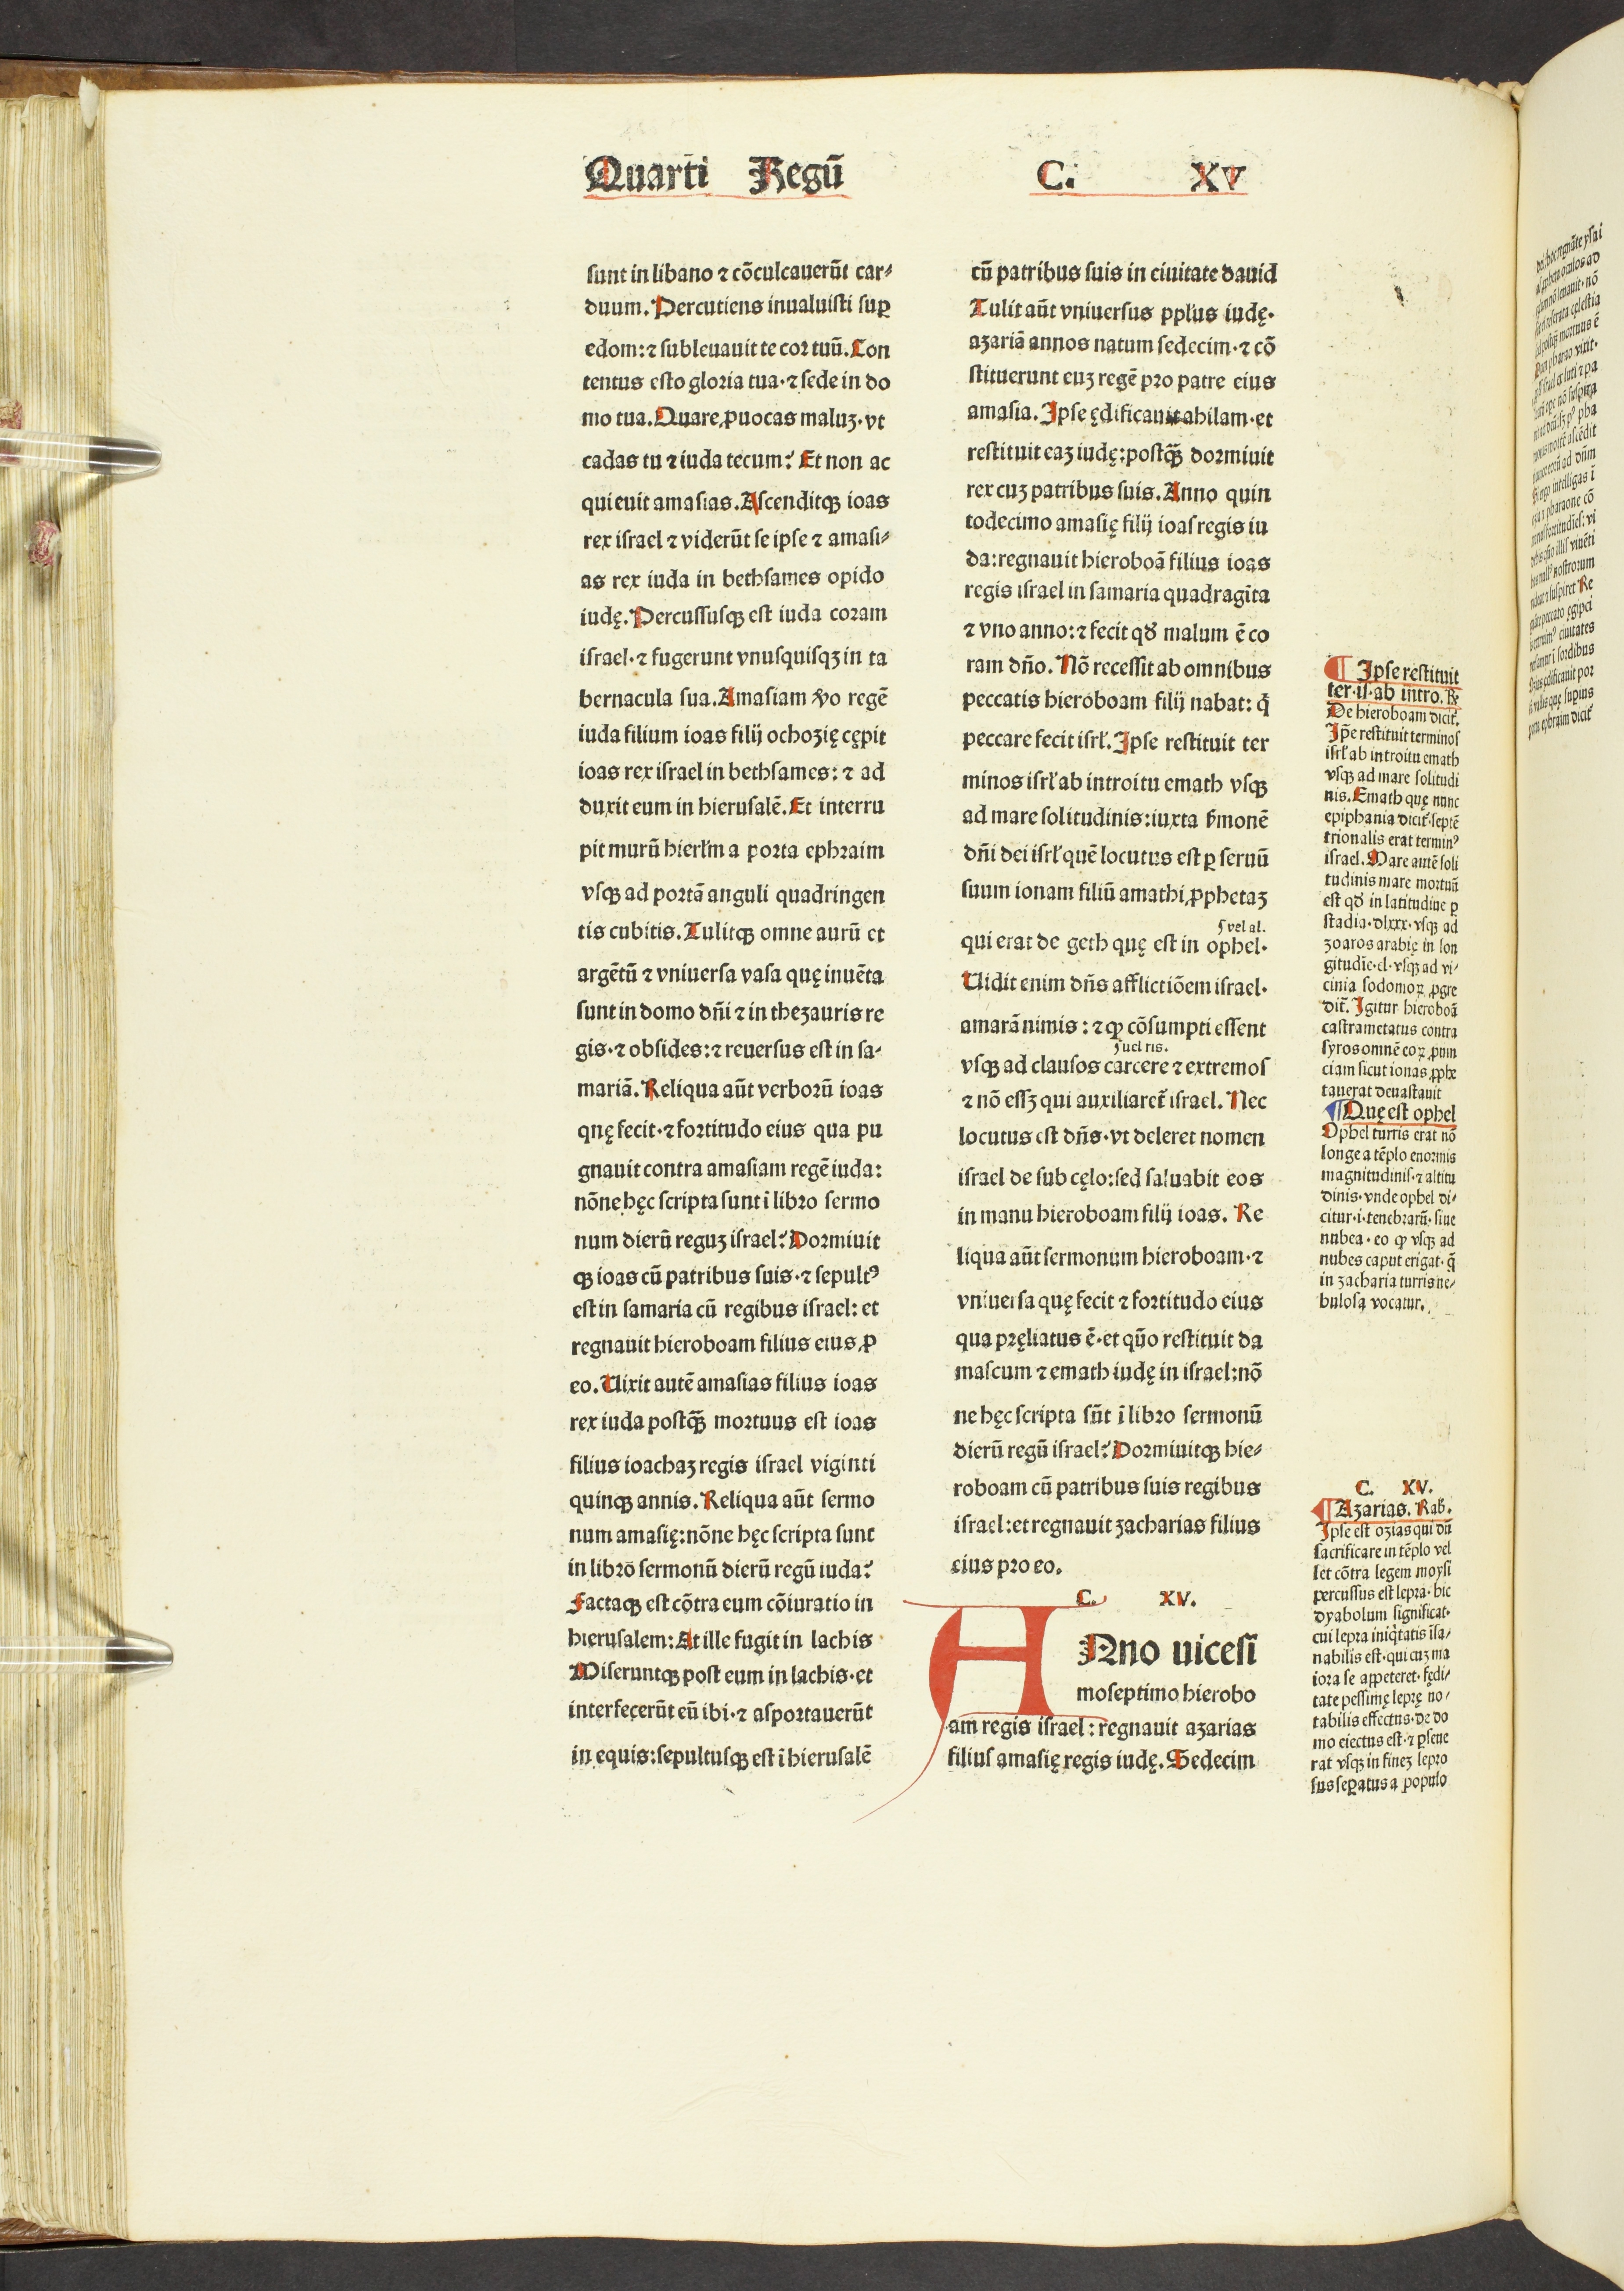 Quarti Regū C. XV
sunt in libano ⁊ cōculcauerūt car⸗
duum. Percutiens inualuisti suꝑ
edom: ⁊ subleuauit te cor tuū. Con
tentus esto gloria tua· ⁊ sede in do
mo tua. Quare ꝓuocas maluꝫ· vt
cadas tu ⁊ iuda tecum? Et non ac
quieuit amasias. Ascenditqꝫ ioas
rex israel ⁊ viderūt se ipse ⁊ amasi⸗
as rex iuda in bethsames opido
iudę. Percussusqꝫ est iuda coram
israel· ⁊ fugerunt vnusquisqꝫ in ta
bernacula sua. Amasiam ṽo regē
iuda filium ioas filij ochozię cępit
ioas rex israel in bethsames: ⁊ ad
duxit eum in hierusalē. Et interru
pit murū hierłm a porta ephraim
vsqꝫ ad portā anguli quadringen
tis cubitis. Tulitqꝫ omne aurū et
argētū ⁊ vniuersa vasa quę inuēta
sunt in domo dn̄i ⁊ in thezauris re
gis· ⁊ obsides: ⁊ reuersus est in sa⸗
mariā. Reliqua aūt verborū ioas
quę fecit· ⁊ fortitudo eius qua pu
gnauit contra amasiam regē iuda:
nōne hęc scripta sunt ī libro sermo
num dierū reguꝫ israel? Dormiuit
qꝫ ioas cū patribus suis· ⁊ sepultꝰ
est in samaria cū regibus israel: et
regnauit hieroboam filius eius ꝓ
eo. Uixit autē amasias filius ioas
rex iuda postqꝫ̄ mortuus est ioas
filius ioachaz regis israel viginti
quinqꝫ annis. Reliqua aūt sermo
num amasię: nōne hęc scripta sunt
in libro sermonū dierū regū iuda?
Factaqꝫ est cōtra eum cōiuratio in
hierusalem: At ille fugit in lachis
Miseruntqꝫ post eum in lachis· et
interfecerūt eū ibi· ⁊ asportauerūt
in equis: sepultusqꝫ est ī hierusalē
cū patribus suis in ciuitate dauid
Tulit aūt vniuersus ppl'us iudę·
azariā annos natum sedecim· ⁊ cō
stituerunt euꝫ regē pro patre eius
amasia. Ipse ędificauit ahilam· et
restituit eaꝫ iudę: postqꝫ̄ dormiuit
rex cuꝫ patribus suis. Anno quin
todecimo amasię filij ioas regis iu
da: regnauit hieroboā filius ioas
regis israel in samaria quadragīta
⁊ vno anno: ⁊ fecit qđ malum ē co
ram dn̄o. Nō recessit ab omnibus
peccatis hieroboam filij nabat: q̄
peccare fecit isrł. Ipse restituit ter
minos isrł ab introitu emath vsqꝫ
ad mare solitudinis: iuxta s̄monē
dn̄i dei isrł quē locutus est ꝑ seruū
suum ionam filiū amathi ꝓphetaꝫ
ſ vel al.
qui erat de geth quę est in ophel·
Uidit enim dn̄s afflictiōem israel·
amarā nimis: ⁊ ꝙ cōsumpti essent
ſ uel ris.
vsqꝫ ad clausos carcere ⁊ extremos
⁊ nō essꝫ qui auxiliaret̄ israel. Nec
locutus est dn̄s· vt deleret nomen
israel de sub cęlo: sed saluabit eos
in manu hieroboam filij ioas. Re
liqua aūt sermonum hieroboam· ⁊
vniuersa quę fecit ⁊ fortitudo eius
qua pręliatus ē· et qūo restituit da
mascum ⁊ emath iudę in israel: nō
ne hęc scripta sūt ī libro sermonū
dierū regū israel? Dormiuitqꝫ hie⸗
roboam cū patribus suis regibus
israel: et regnauit zacharias filius
eius pro eo.
C. XV.
ANno uicesī
moseptimo hierobo
am regis israel: regnauit azarias
filius amasię regis iudę. Sedecim
¶ Ipse restituit
ter·is·ab intro. R̄.
De hieroboam dicit̄.
Ip̄e restituit terminos
isrł ab introitu emath
vsqꝫ ad mare solitudi
nis. Emath quę nunc
epiphania dicit̄· septē
trionalis erat terminꝰ
israel. Mare autē soli
tudinis mare mortuū
est qđ in latitudine ꝑ
stadia· dlxxx· vsqꝫ ad
zoaros arabię in lon
gitudīe· cl· vsqꝫ ad vi⸗
cinia sodomoꝝ ꝓgre
dit̄. Igitur hieroboā
castrametatus contra
syros omnē eoꝝ ꝓuin
ciam sicut ionas ꝓphe
tauerat deuastauit
¶ Quę est ophel
Ophel turris erat nō
longe a tēplo enormis
magnitudinis· ⁊ altitu
dinis· vnde ophel di⸗
citur· i· tenebrarū· siue
nubea· eo ꝙ vsqꝫ ad
nubes caput erigat· q̄
in zacharia turris ne⸗
bulosa vocatur.
C. XV.
¶ Azarias. Rab̄.
Ipse est ozias qui dū
sacrificare in tēplo vel
let cōtra legem moysi
percussus est lepra· hic
dyabolum significat·
cui lepra iniq̄tatis īsa⸗
nabilis est· qui cuꝫ ma
iora se appeteret· fędi⸗
tate pessimę leprę no⸗
tabilis effectus· de do
mo eiectus est· ⁊ ꝑseue
rat vsqꝫ in fineꝫ lepro
sus seꝑatus a populo